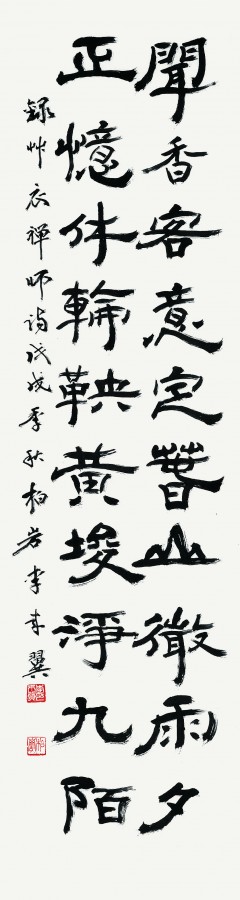 聞香客意定暮山微雨夕
正憶休輪鞅黃埃淨九陌
錄艸衣禪師詩戊戌季秋柏岩李東翼